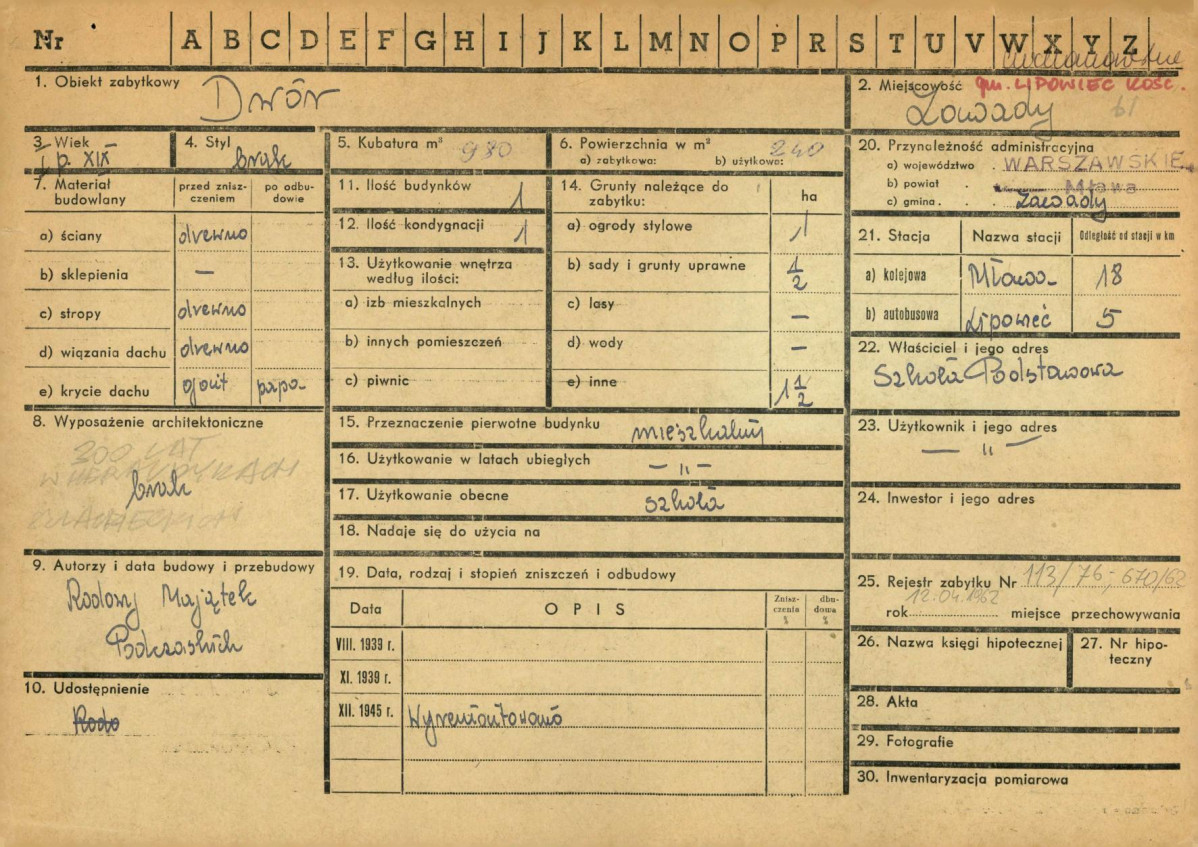 Nr A B C D E F G H I J K L M N O P R S T U V W X Y Z
1. Obiekt zabytkowy Dwór
2. Miejscowość gm. LIPOWIEC KOŚC.
Zawady
3. Wiek
p. XIX
4. Styl
brak
5. Kubatura m³ 980
6. Powierzchnia w m²
a) zabytkowa: b) użytkowa: 240
20. Przynależność administracyjna
a) województwo . WARSZAWSKIE
b) powiat . Mława
c) gmina . . Zawady
7. Materiał budowlany
przed zniszczeniem
po odbudowie
a) ściany drewno
b) sklepienia —
c) stropy drewno
d) wiązania dachu drewno
e) krycie dachu gont papa
11. Ilość budynków 1
12. Ilość kondygnacji 1
13. Użytkowanie wnętrza
według ilości:
a) izb mieszkalnych
b) innych pomieszczeń
c) piwnic
14. Grunty należące do
zabytku: ha
a) ogrody stylowe 1
b) sady i grunty uprawne 1/2
c) lasy —
d) wody —
e) inne 1 1/2
21. Stacja Nazwa stacji Odległość od stacji w km
a) kolejowa Mława 18
b) autobusowa Lipowiec 5
22. Właściciel i jego adres
Szkoła Podstawowa
8. Wyposażenie architektoniczne
300 LAT
brak
15. Przeznaczenie pierwotne budynku mieszkalny
16. Użytkowanie w latach ubiegłych — " —
17. Użytkowanie obecne szkoła
18. Nadaje się do użycia na
23. Użytkownik i jego adres
— " —
24. Inwestor i jego adres
9. Autorzy i data budowy i przebudowy
Rodowy Majątek
Podczaskich
10. Udostępnienie
19. Data, rodzaj i stopień zniszczeń i odbudowy
Data OPIS Zniszczenia % dbudowa %
VIII. 1939 r.
XI. 1939 r.
XII. 1945 r. Wyremontowano
25. Rejestr zabytku Nr 113/76, 670/62
12.04.1962
rok miejsce przechowywania
26. Nazwa księgi hipotecznej
27. Nr hipoteczny
28. Akta
29. Fotografie
30. Inwentaryzacja pomiarowa